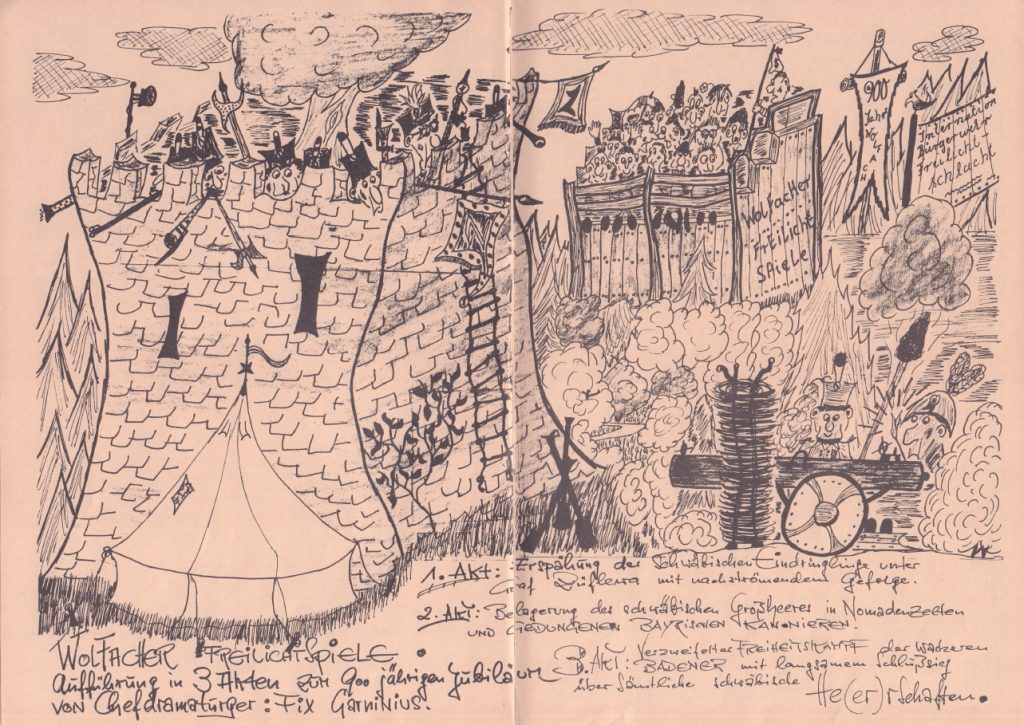 900
Jahr
Internation
Bürgerwehr
freilicht
schlacht
Wolfacher
FREILICHT
SPIELE
1. Akt: Erspähung der Schwäbischen Eindringlinge unter
Graf mit nachströmendem Gefolge.
2. Akt: Belagerung des schwäbischen Großheeres in Nomadenzelten
UND GEDUNGENER BAYRISCHEN KANONIEREN!
3. Akt: Verzweifelter FREIHEITSKAMPF der wackeren
BADENER mit langsamem Schlußsieg
über sämtliche schwäbische He(er)rschaften.
WOLFACHER FREILICHTSPIELE.
Aufführung in 3 Akten zur 900 jährigen Jubiläum
von Chefdramaturger: Fix Garninius.